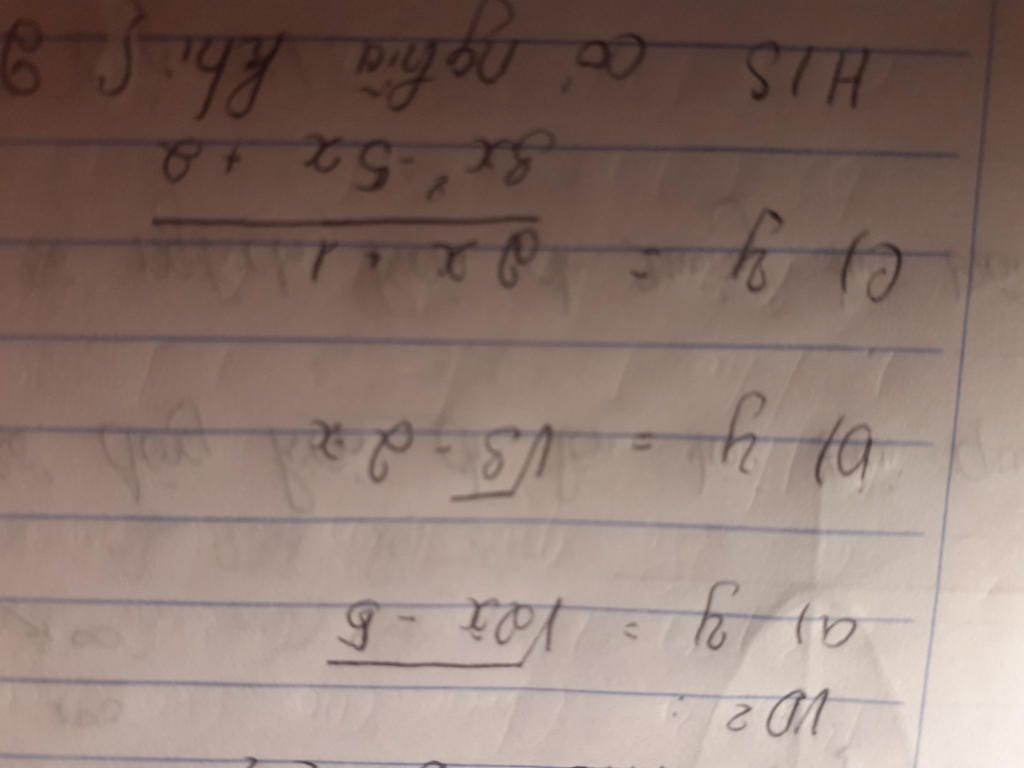 VD2 :
a) y = √2x - 5
b) y = √3 - 2x
c) y = 2x + 1
3x² - 5x + 2
H/S có nghĩa khi {